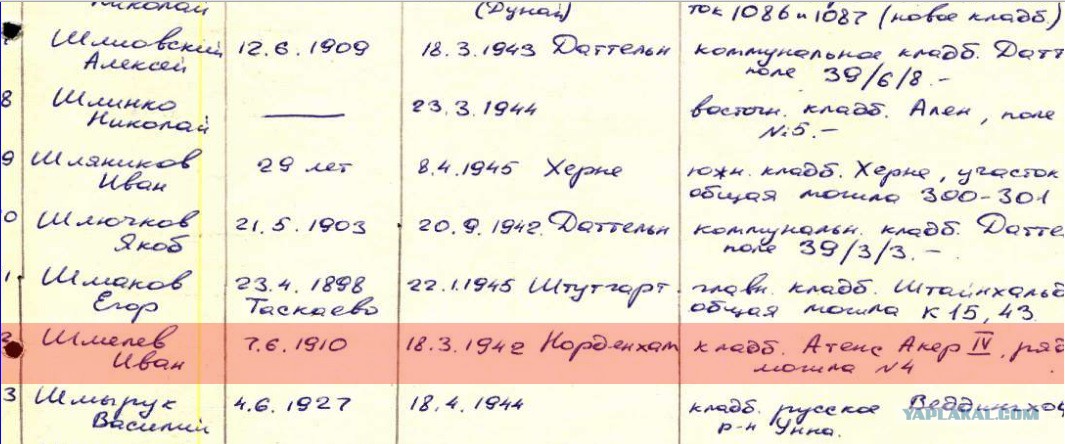 Николай (Дунай) ток 1086 и 1087 (новое кладб.)
7 Шлиовский 12.6.1909 18.3.1943 Даттельн коммунальное кладб. Датт
Алексей поле 39/6/8.-
8 Шлинко —— 23.3.1944 восточн. кладб. Ален, поле
Николай №5.-
9 Шляников 29 лет 8.4.1945 Херне южн. кладб. Херне, участок
Иван общая могила 300-301
0 Шлючков 21.5.1903 20.9.1942 Даттельн коммунальн. кладб. Датте
Якоб поле 39/3/3.-
1 Шмаков 23.4.1898 22.1.1945 Штутгарт главн. кладб. Штайнхальд
Егор Таскаево общая могила К 15,43.
2 Шмелев 7.6.1910 18.3.1942 Норденхам кладб. Атенс Акер IV, ряд
Иван могила №4
3 Шмырук 4.6.1927 18.4.1944 кладб. русское
Василий р-н Унна.
YAPLAKAL.COM